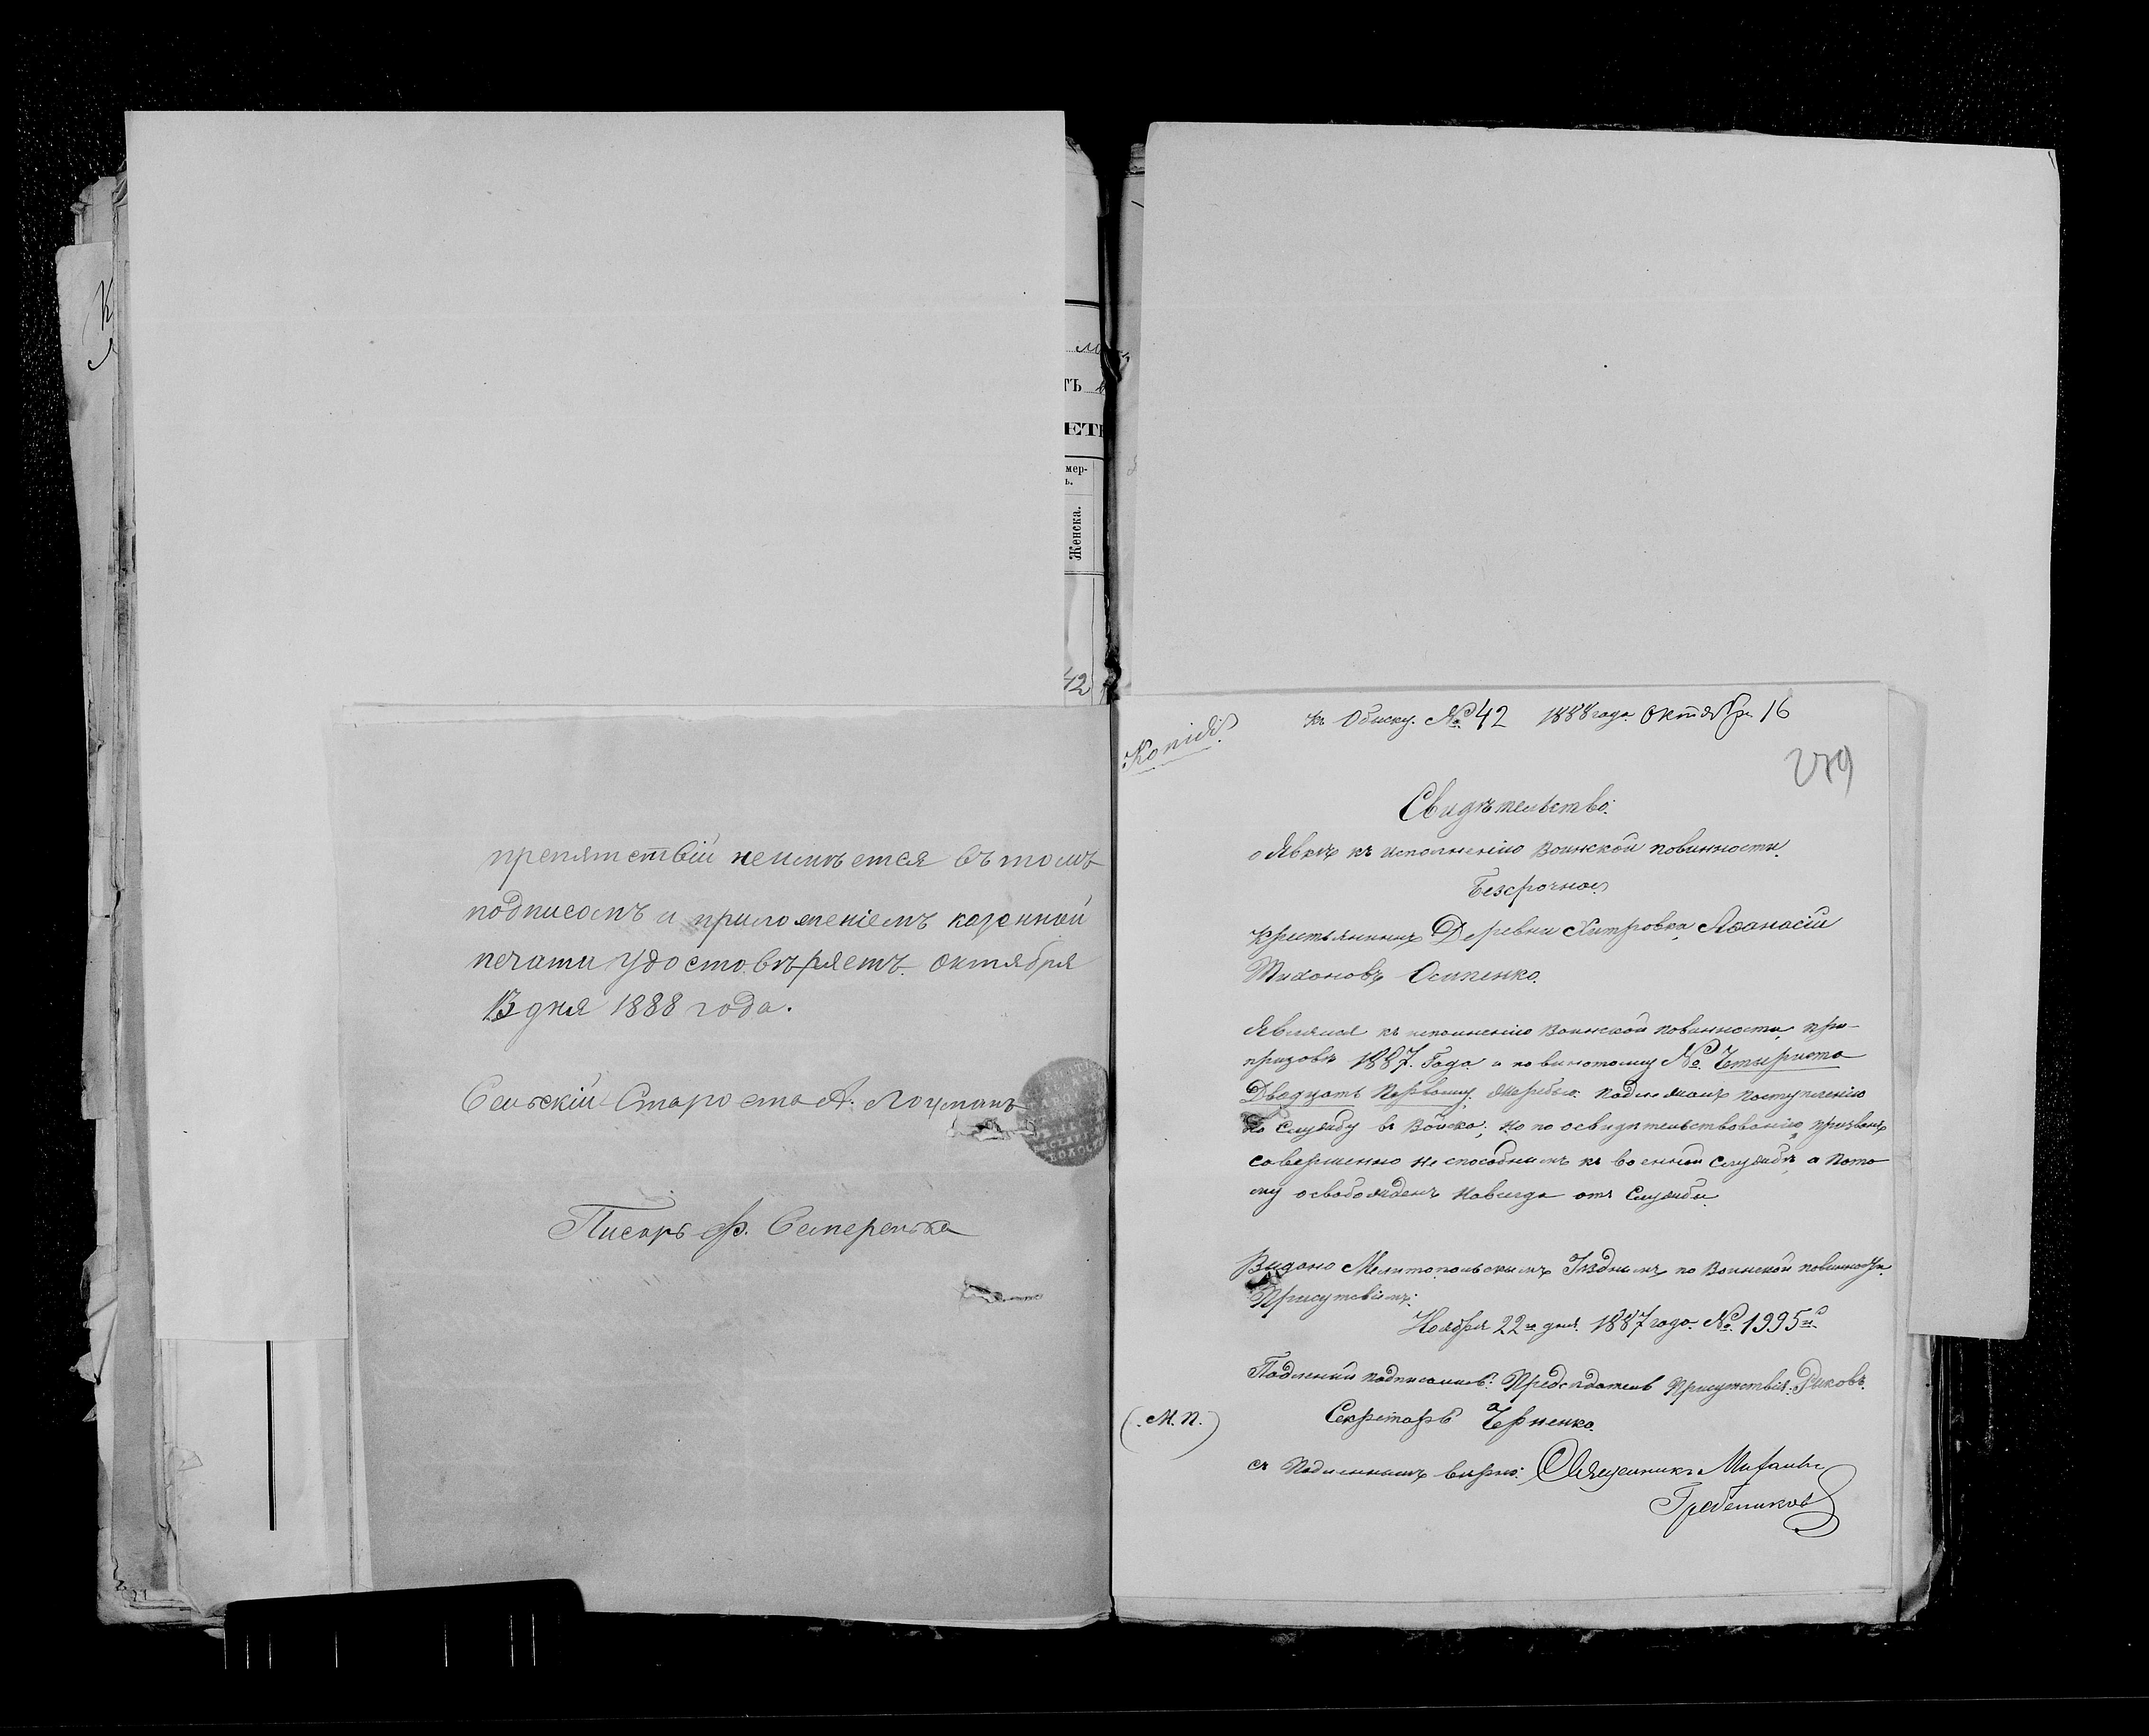 препятствій неимѣется въ томъ
подписомъ и приложеніемъ казенной
печати удостовѣряетъ октября
13 дня 1888 года.
Сельскій Староста А. Лоцманъ
Писарь Ф.
Женска.
мер-
42
Копія.
къ Обиску. № 42 1888 года Октября 16
279
Свидѣтельство:
о Явкѣ къ исполненію Воинской повинности.
Безсрочное
Крестьянинъ Деревни Хитровка, Аѳанасій
Тихоновъ Осипенко.
Являлся къ исполненію Воинской повинности, при-
призовѣ 1887. Года и по винютому № Четириста
Двадцать Первому, жеребью: подлежалъ поступленію
на Службу въ Войска; но по освидѣтельствованію, призванъ
совершенно неспособнымъ къ военной службѣ, а пото
му освобожденъ навсегда отъ Служби.
Видано Мелитопольскимъ Уѣзднымъ по Воинской повинности
Присутствіемъ:
Ноября 22го дня. 1887 года. № 1995й.
Подлений подписали: Предсѣдатель Присутствія: Риковъ.
(М. П.)
Секретарь Черненко.
съ Подленнымъ вѣрно: Священникъ Михаилъ
Гребениковъ